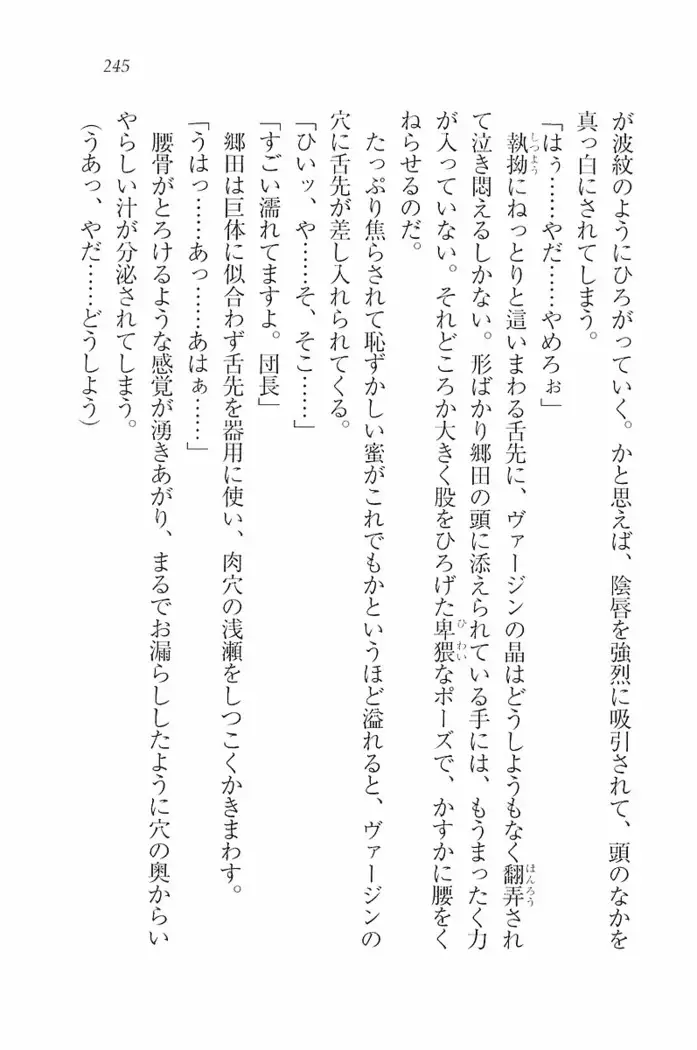 245
が波紋のようにひろがっていく。かと思えば、陰唇を強烈に吸引されて、頭のなかを
真っ白にされてしまう。
「はぅ……やだ……やめろぉ」
執拗にねっとりと這いまわる舌先に、ヴァージンの晶はどうしようもなく翻弄され
て泣き悶えるしかない。形ばかり郷田の頭に添えられている手には、もうまったく力
が入っていない。それどころか大きく股をひろげた卑猥なポーズで、かすかに腰をく
ねらせるのだ。
たっぷり焦らされて恥ずかしい蜜がこれでもかというほど溢れると、ヴァージンの
穴に舌先が差し入れられてくる。
「ひいッ、や……そ、そこ……」
「すごい濡れてますよ。団長」
郷田は巨体に似合わず舌先を器用に使い、肉穴の浅瀬をしつこくかきまわす。
「うはっ……あっ……あはぁ……」
腰骨がとろけるような感覚が湧きあがり、まるでお漏らししたように穴の奥からい
やらしい汁が分泌されてしまう。
(うあっ、やだ……どうしよう)